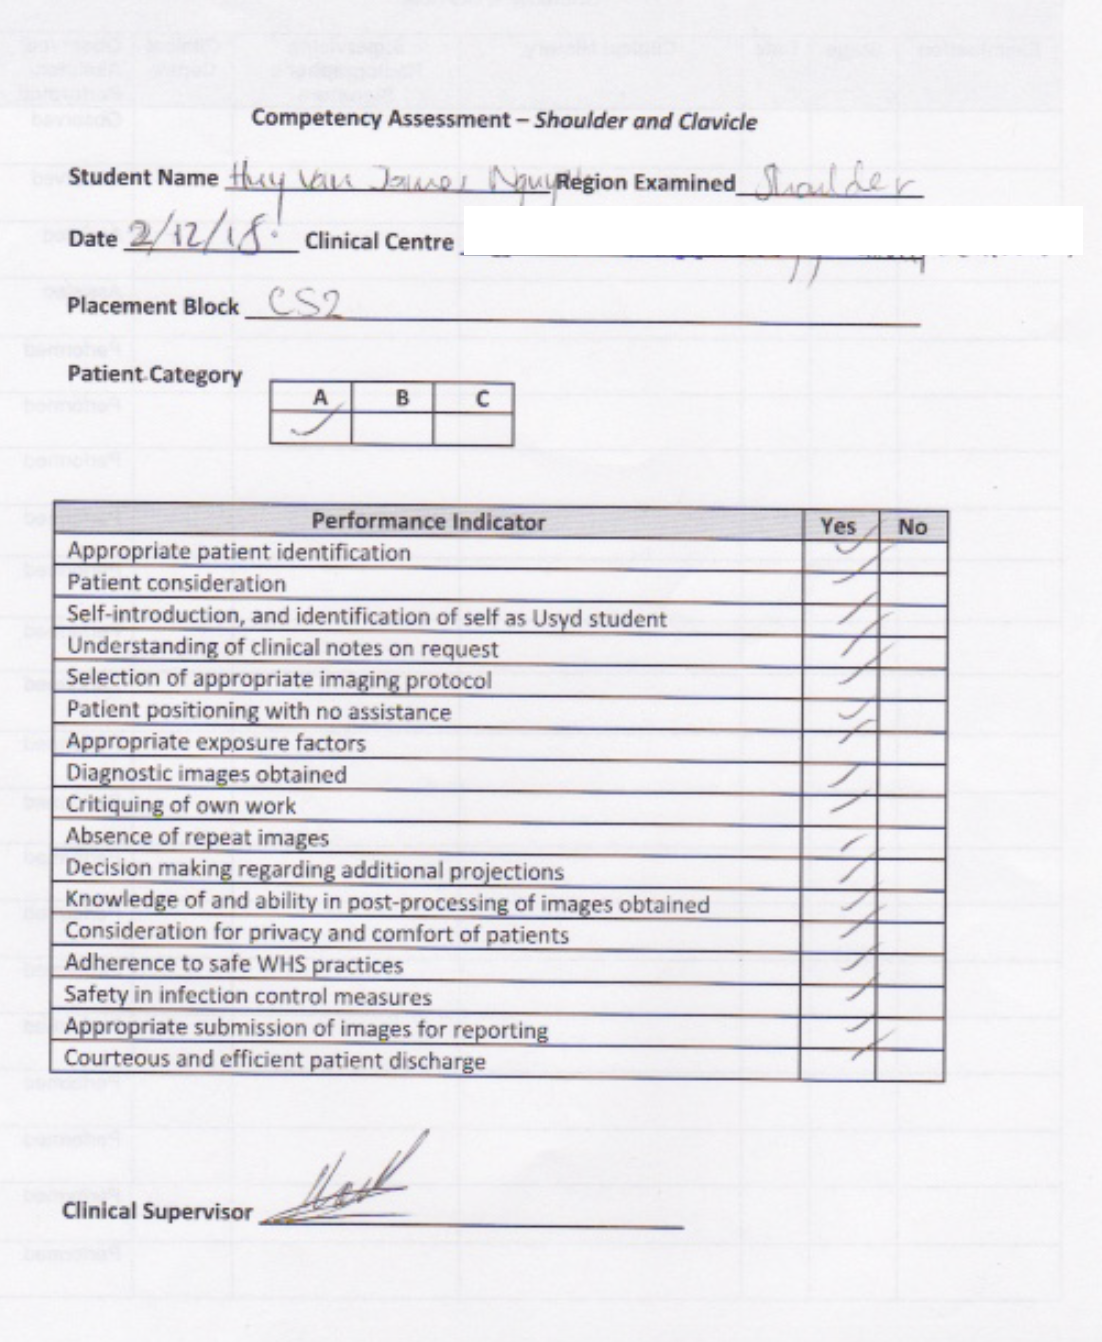 Competency Assessment – Shoulder and Clavicle
Student Name Huy Van James Region Examined Shoulder
Date 2/12/18 Clinical Centre
Placement Block CS2
Patient Category
A B C
✓
Performance Indicator Yes No
Appropriate patient identification ✓
Patient consideration ✓
Self-introduction, and identification of self as Usyd student ✓
Understanding of clinical notes on request ✓
Selection of appropriate imaging protocol ✓
Patient positioning with no assistance ✓
Appropriate exposure factors ✓
Diagnostic images obtained ✓
Critiquing of own work ✓
Absence of repeat images ✓
Decision making regarding additional projections ✓
Knowledge of and ability in post-processing of images obtained ✓
Consideration for privacy and comfort of patients ✓
Adherence to safe WHS practices ✓
Safety in infection control measures ✓
Appropriate submission of images for reporting ✓
Courteous and efficient patient discharge ✓
Clinical Supervisor